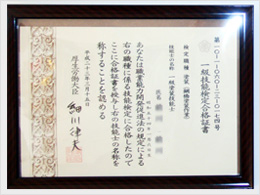 第一〇一一〇〇一二一〇一七四号
一級技能検定合格証書
検定職種 塗装(鋼橋塗装作業)
技能士の名称 一級塗装技能士
氏名
あなたは職業能力開発促進法の規定による
右の職種に係る技能検定に合格したので
ここに合格証書を授与し右の技能士の名称を
称することを認める
平成二十三年三月十五日
厚生労働大臣
細川律夫